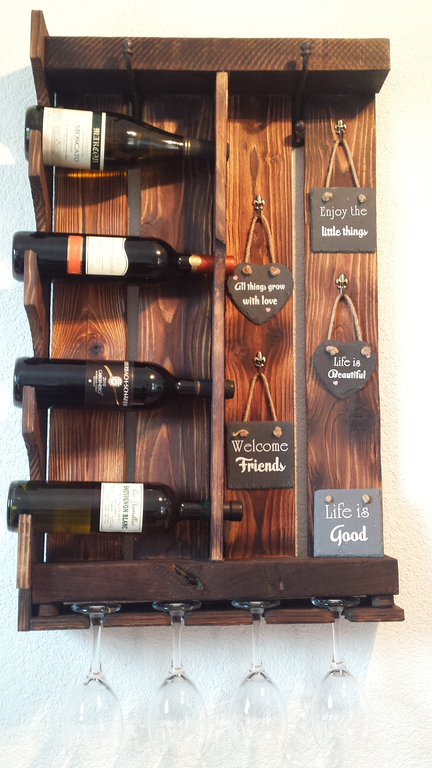 MOSCATO
Enjoy the
little things
All things grow
with love
Life is
Beautiful
Welcome
Friends
SAUVIGNON BLANC
Life is
Good